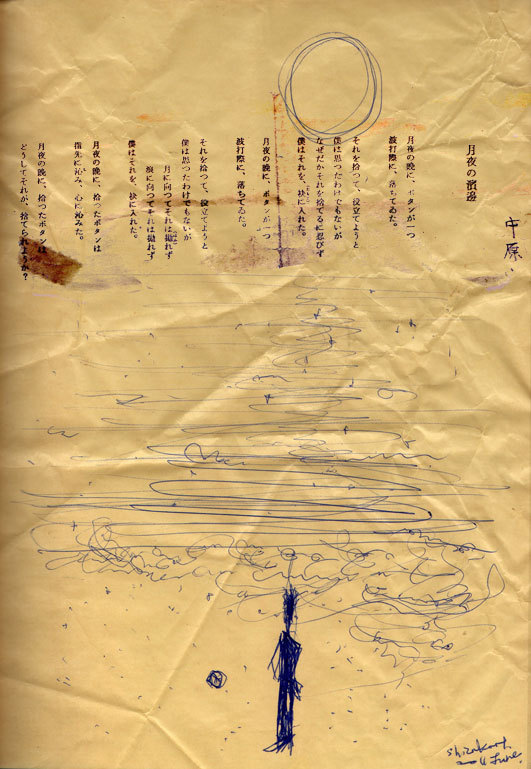 中原
月夜の濱邊
月夜の晩に、ボタンが一つ
波打際に、落ちてゐた。
それを拾つて、役立てようと
僕は思つたわけでもないが
なぜだかそれを捨てるに忍びず
僕はそれを、袂に入れた。
月夜の晩に、ボタンが一つ
波打際に、落ちてゐた。
それを拾つて、役立てようと
僕は思つたわけでもないが
月に向つてそれは抛れず
浪に向つてそれは抛れず
僕はそれを、袂に入れた。
月夜の晩に、拾つたボタンは
指先に沁み、心に沁みた。
月夜の晩に、拾つたボタンは
どうしてそれが、捨てられようか?
June